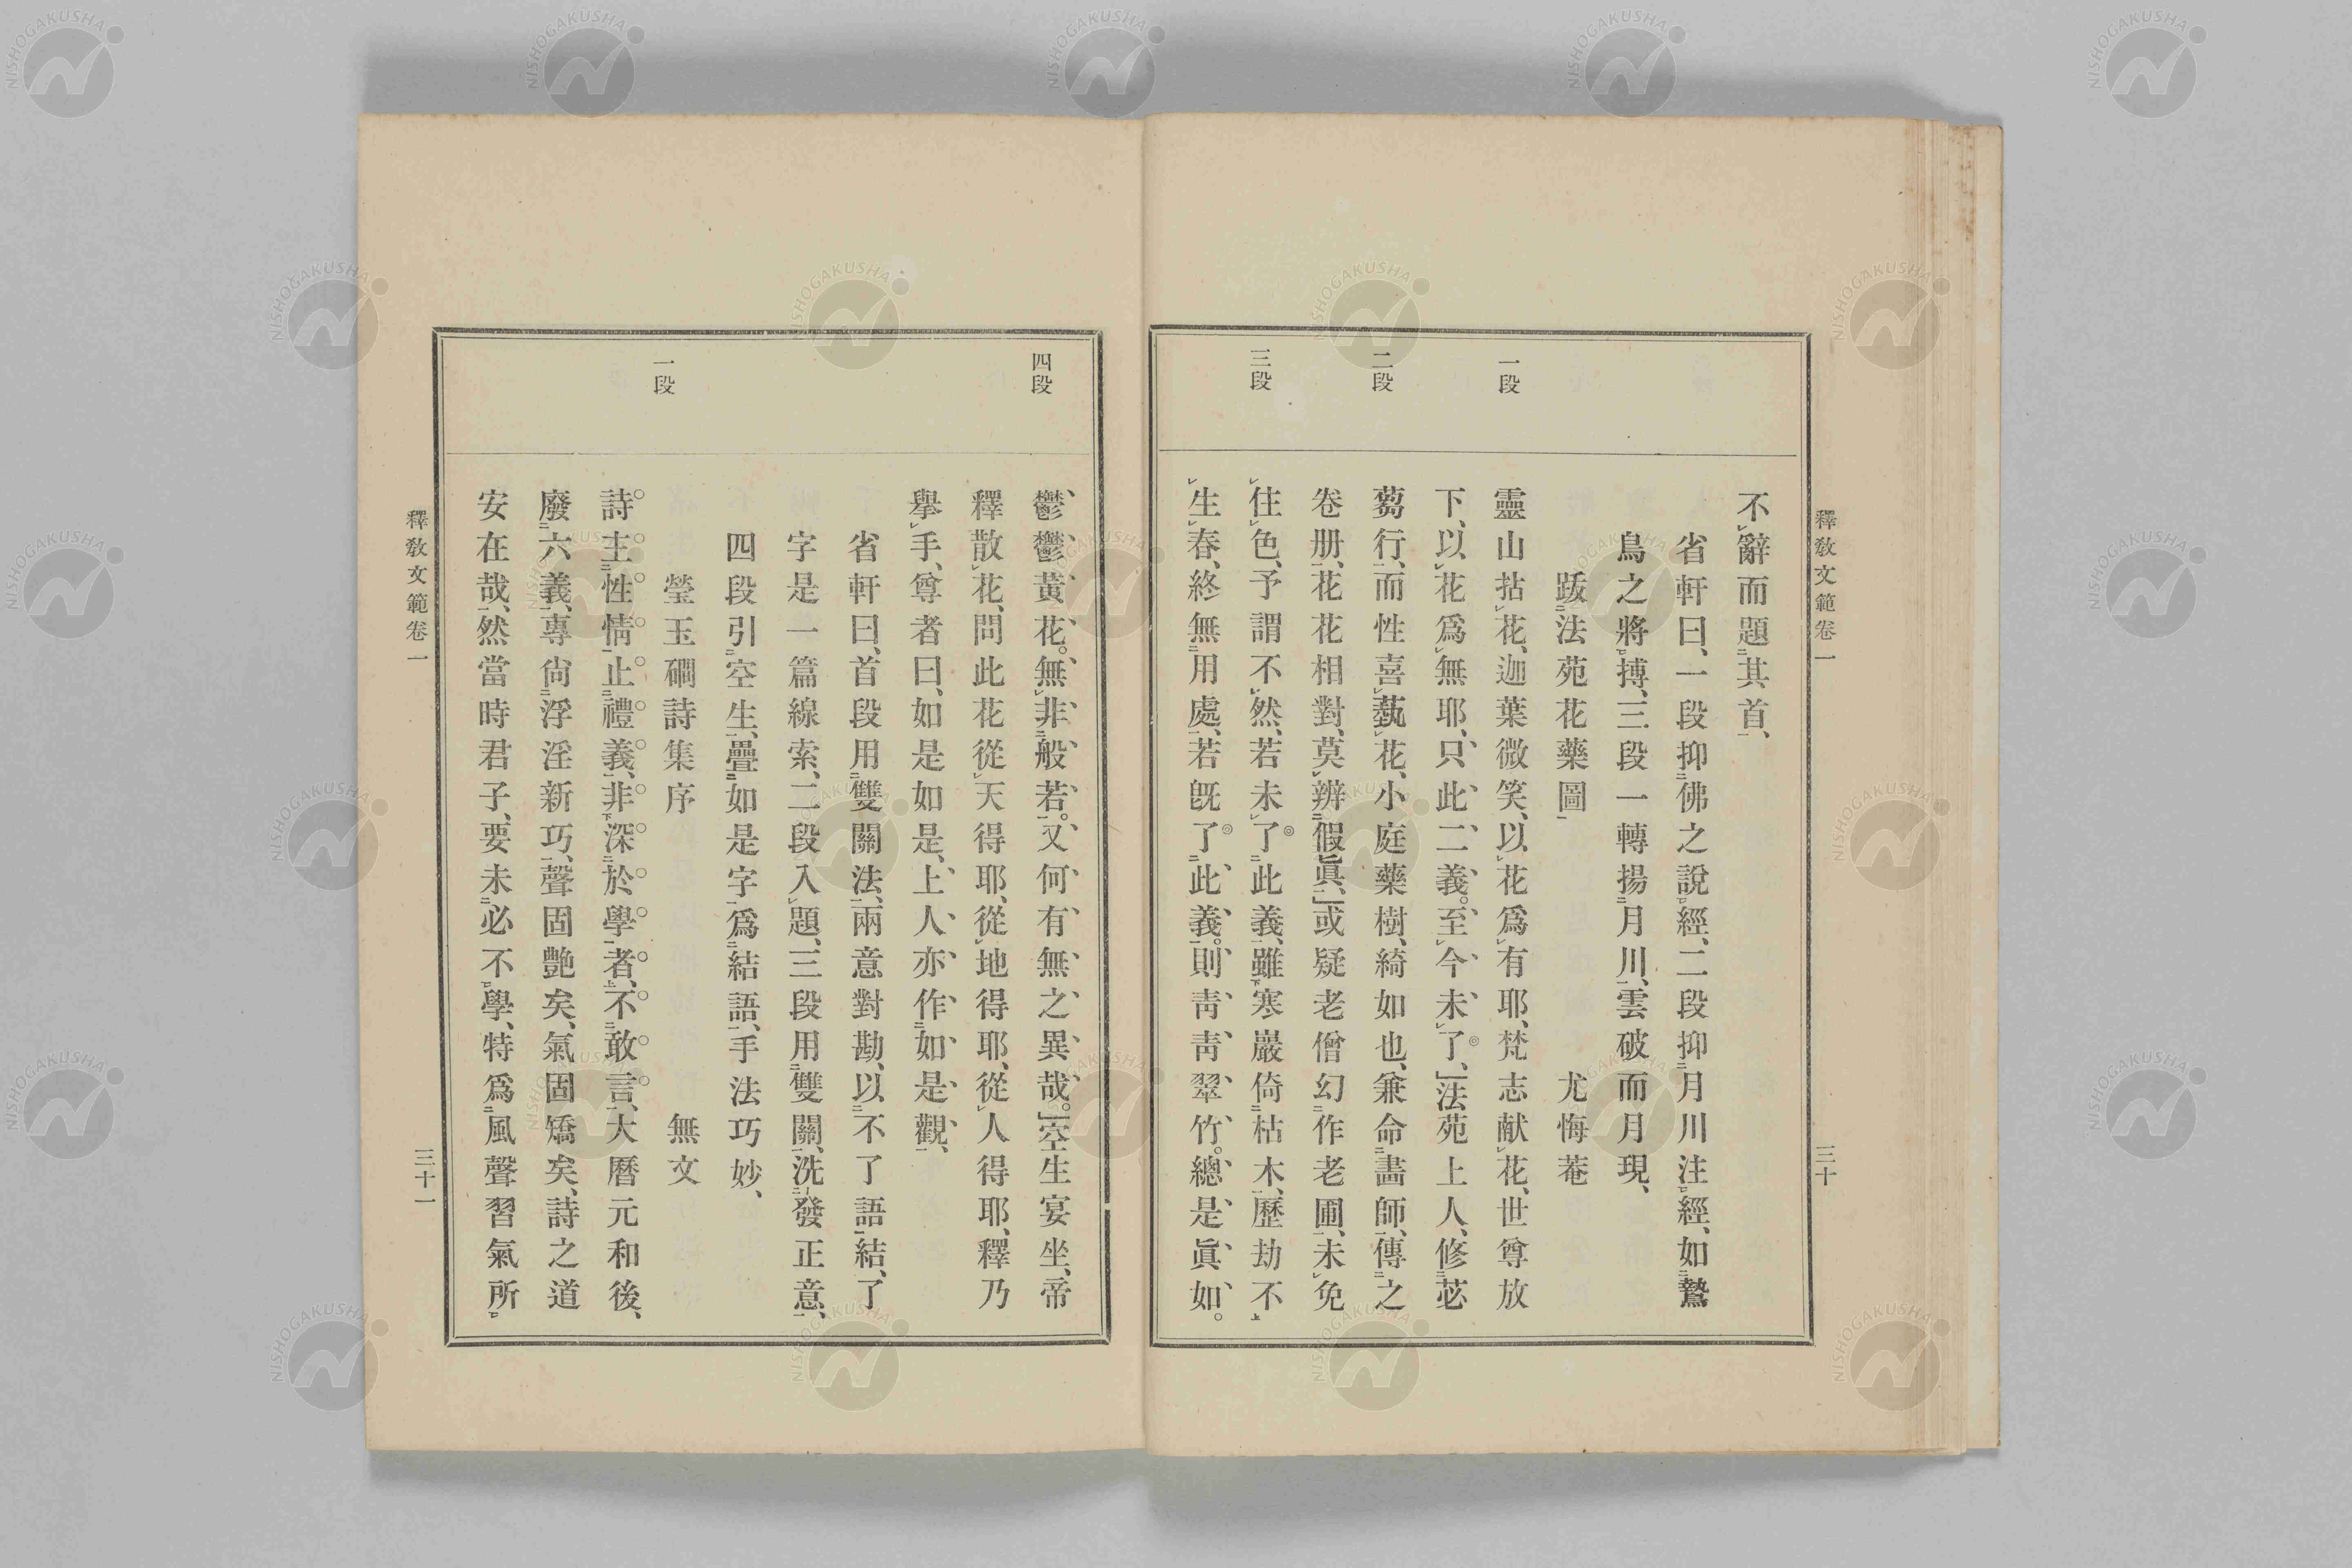 釋教文範卷一
三十
一段
二段
三段
不辭而題其首、
省軒曰、一段抑佛之說經、二段抑月川注經、如鷙
鳥之將搏、三段一轉揚月川、雲破而月現、
跋法苑花藥圖 尤悔菴
靈山拈花、迦葉微笑、以花爲有耶、梵志献花、世尊放
下、以花爲無耶、只此二義。至今未了、法苑上人、修苾
蒭行、而性喜蓺花、小庭藥樹、綺如也、兼命畵師、傳之
卷册、花花相對、莫辨假眞、或疑老僧幻作老圃、未免
住色、予謂不然、若未了此義、雖寒巖倚枯木、歷劫不
生春、終無用處、若旣了此義。則靑靑翠竹。總是眞如。
四段
一段
鬱鬱黃花。無非般若。又何有無之異哉。空生宴坐、帝
釋散花、問此花從天得耶、從地得耶、從人得耶、釋乃
擧手、尊者曰、如是如是、上人亦作如是觀、
省軒曰、首段用雙關法、兩意對勘、以不了語結、了
字是一篇線索、二段入題、三段用雙關、洗發正意、
四段引空生、疊如是字、爲結語、手法巧妙、
瑩玉磵詩集序 無文
詩主性情、止禮義、非深於學者、不敢言、大曆元和後、
廢六義、專尙浮淫新巧、聲固艶矣、氣固矯矣、詩之道
安在哉、然當時君子、要未必不學、特爲風聲習氣所
釋教文範卷一
三十一
NISHOGAKUSHA